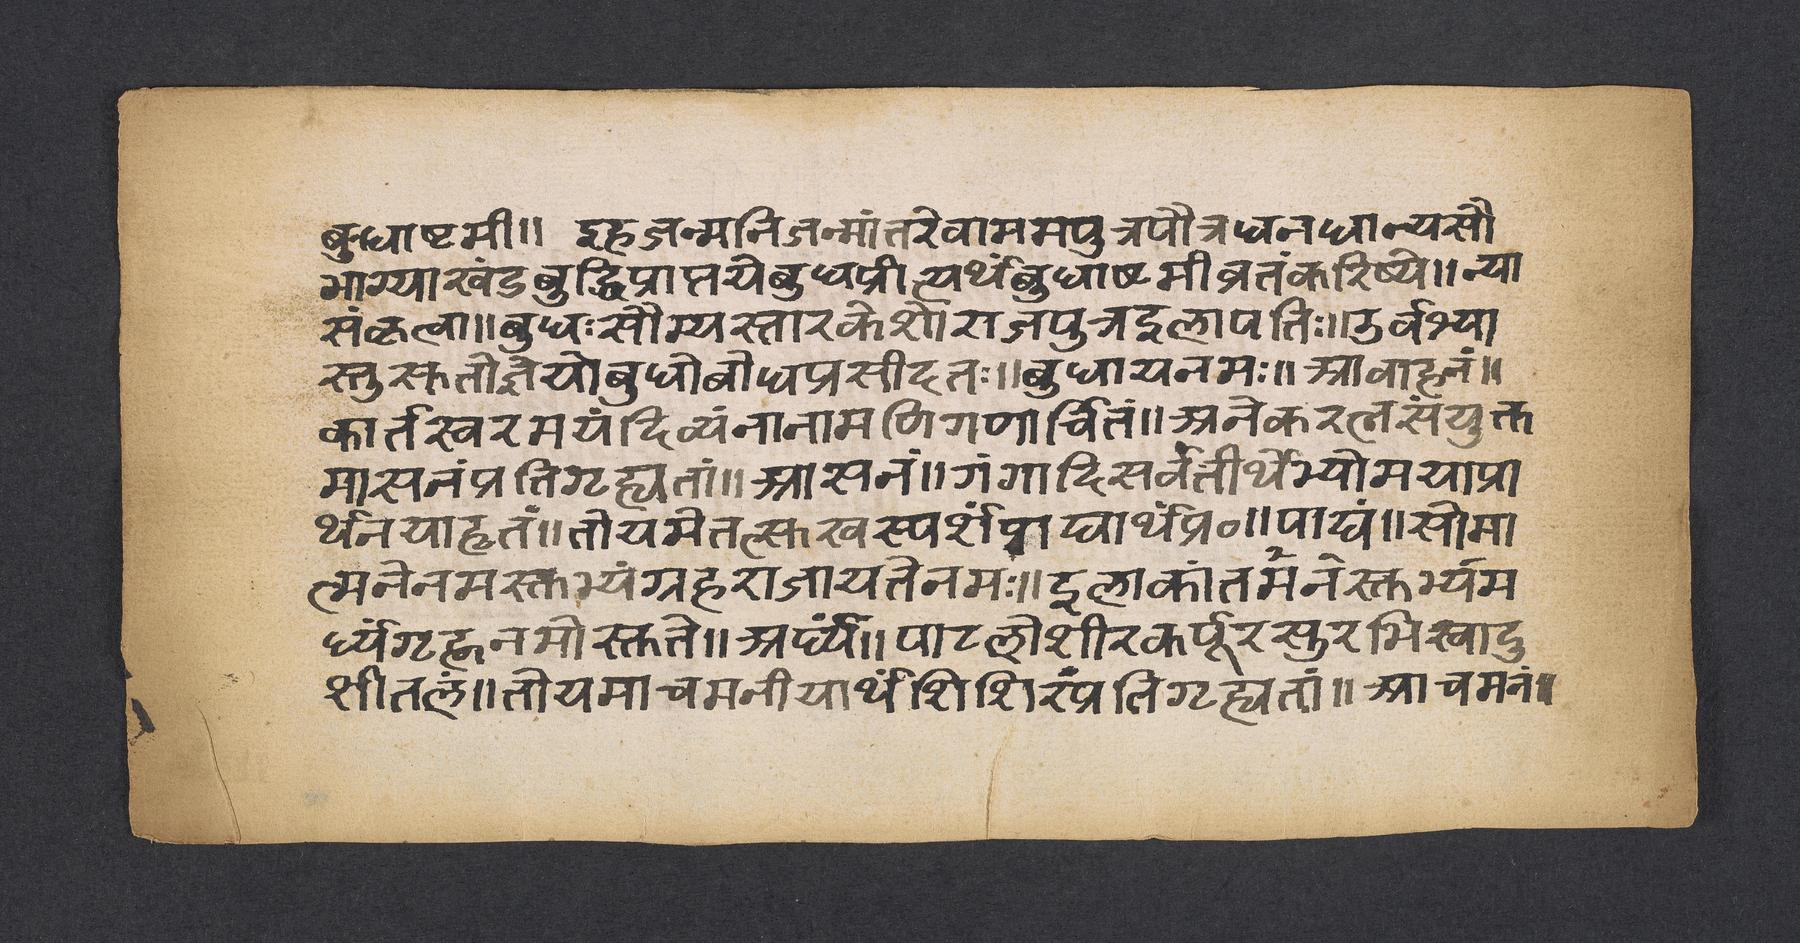 बुधाष्टमी॥ इहजन्मनिजन्मांतरेवाममपुत्रपौत्रधनधान्यसौ
भाग्याखंडबुद्धिप्राप्तयेबुधप्रीत्यर्थंबुधाष्टमीव्रतंकरिष्ये॥न्या
संकृत्वा॥बुधःसौम्यस्तारकेशोराजपुत्रइलापतिः॥उर्वभ्या
स्तुस्कतोज्ञेयोबुधोबोधप्रसीदतः॥बुधायनमः॥आवाहनं॥
कार्तस्वरमयंदिव्यंनानामणिगणार्चितं॥अनेकरत्नसंयुक्त
मासनंप्रतिगृह्यतां॥आसनं॥गंगादिसर्वतीर्थेभ्योमयाप्रा
र्थनयाहृतं॥तोयमेतत्स्कखस्पर्शंपाद्यार्थंप्र०॥पाद्यं॥सोमा
त्मनेनमस्क्तभ्यंग्रहराजायतेनमः॥इलाकांतनमस्क्तभ्यम
र्घ्यंगृह्णनमोस्क्तते॥अर्घ्यं॥पाटलोशीरकर्पूरसुरभिस्वादु
शीतलं॥तोयमाचमनीयार्थंशिशिरंप्रतिगृह्यतां॥आचमनं॥